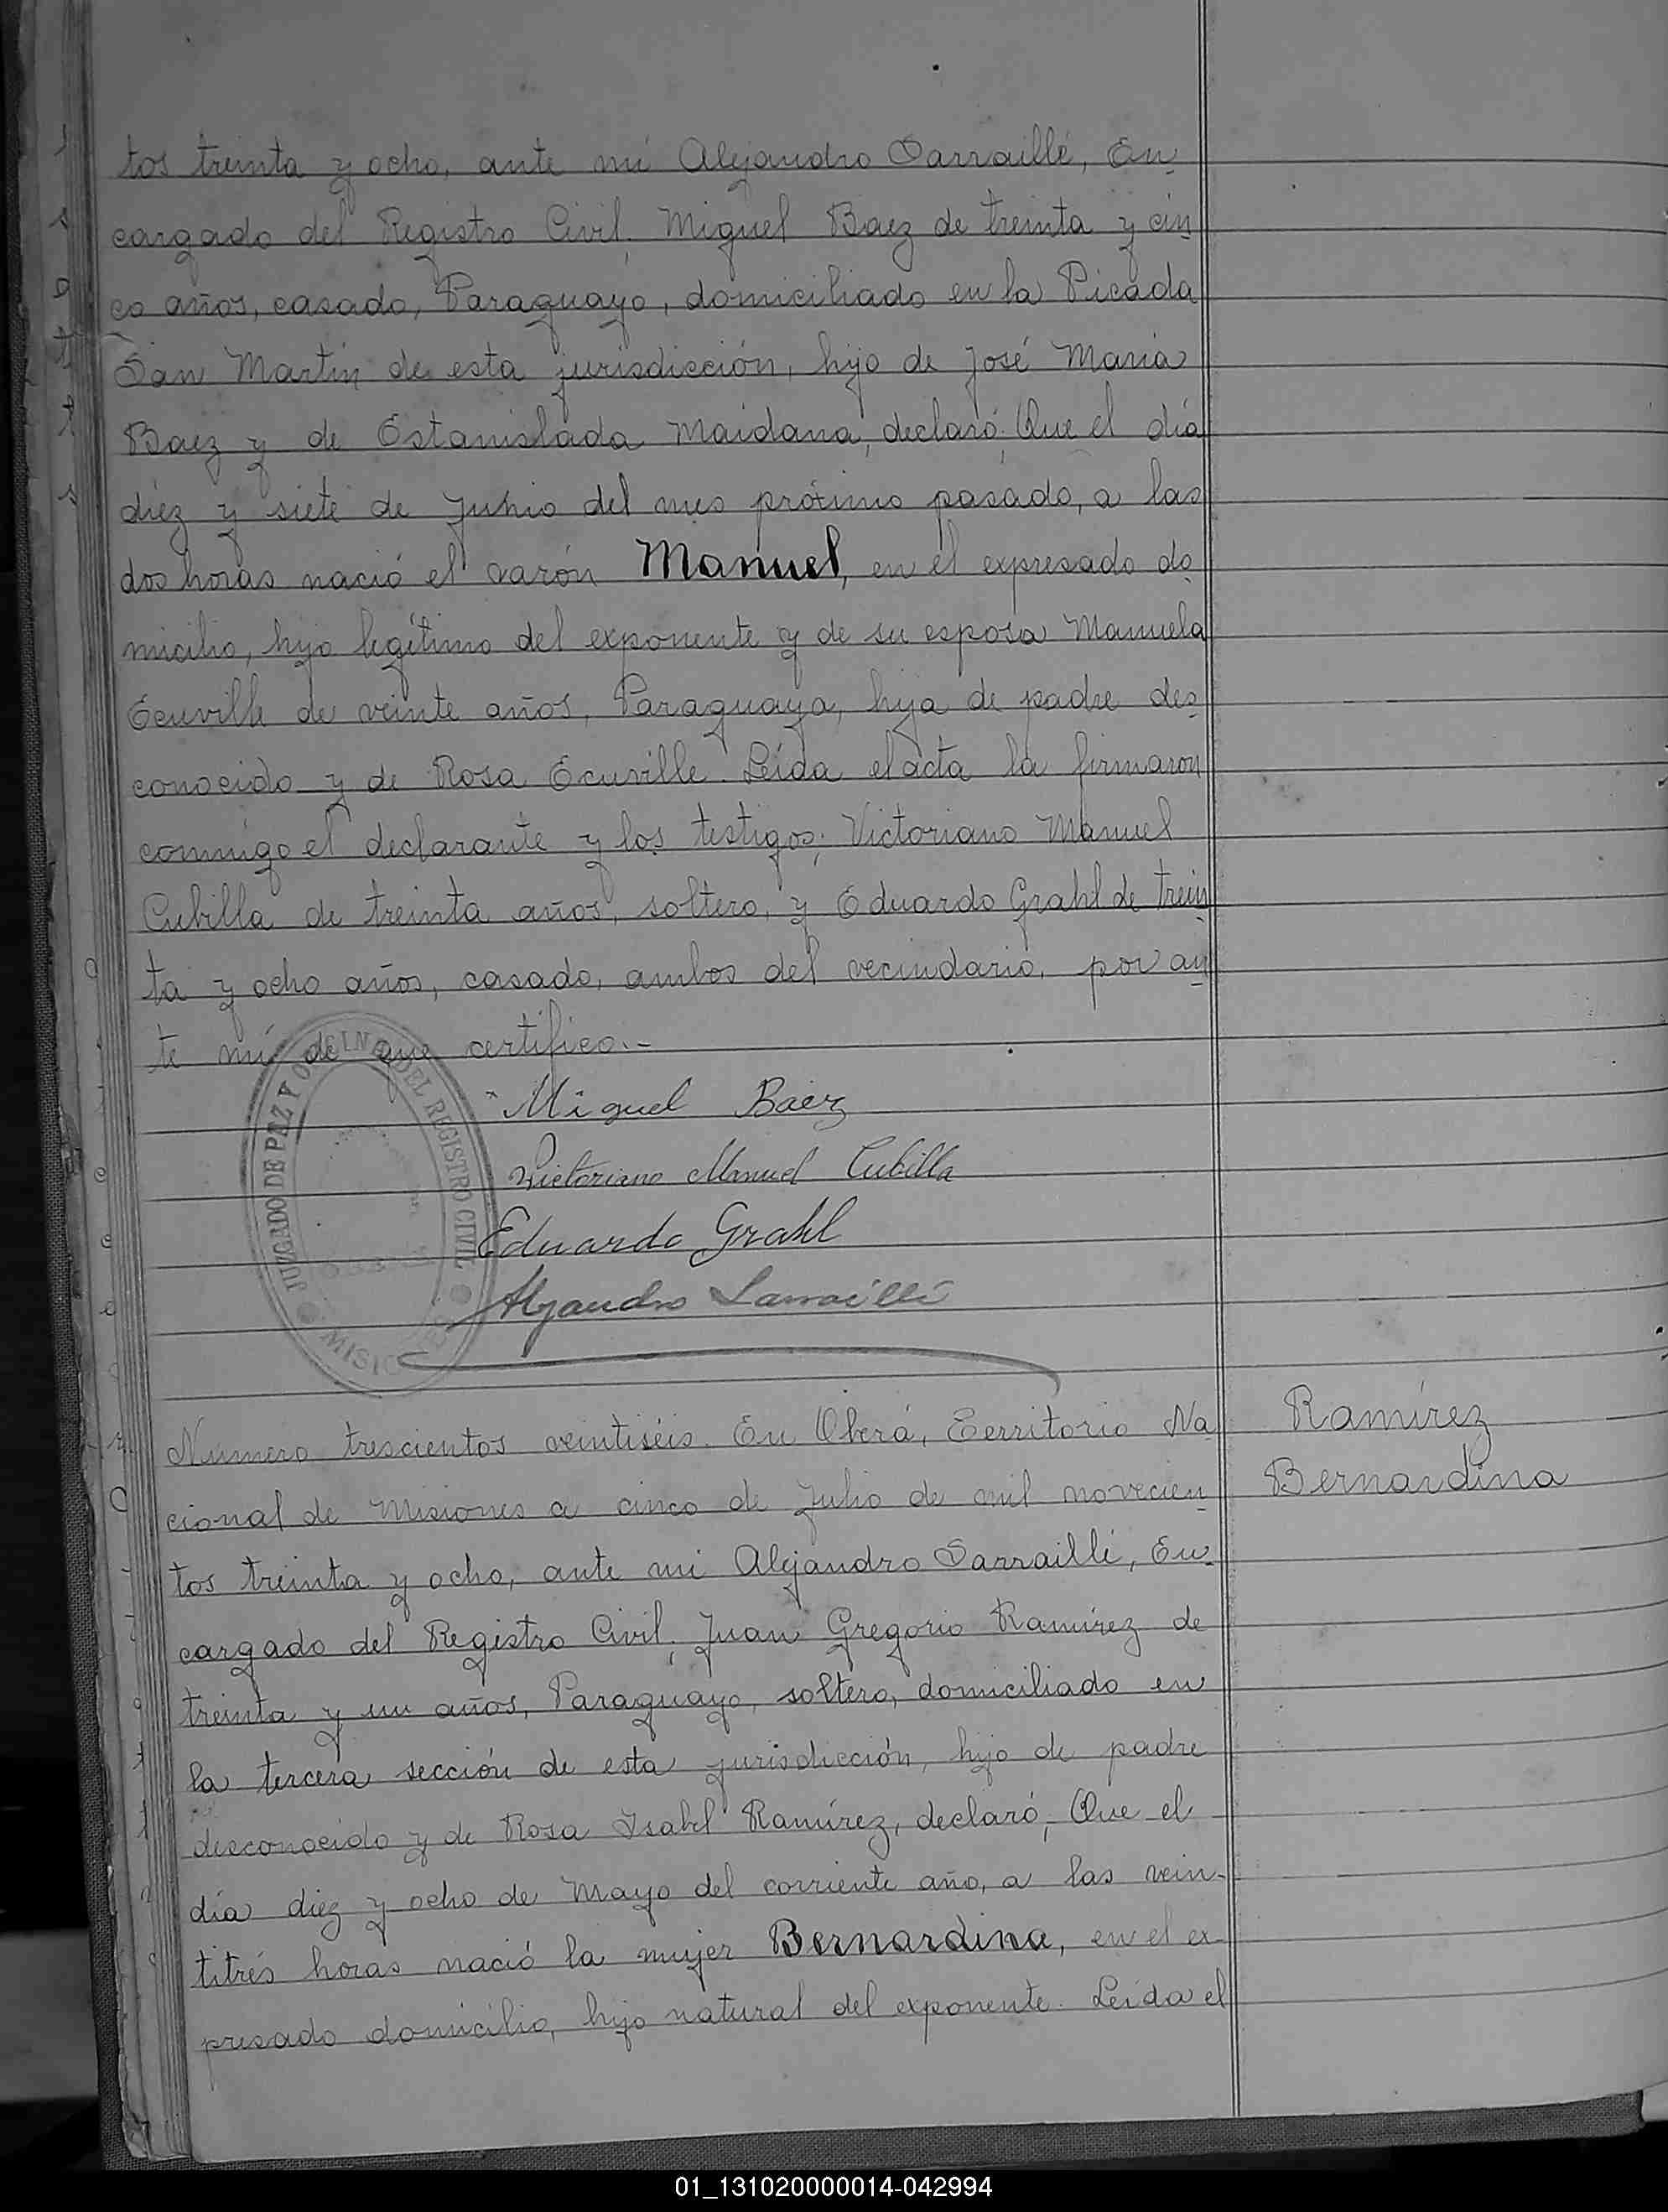 tos treinta y ocho, ante mi Alejandro Sarraillé, En
cargado del Registro Civil. Miguel Baez de treinta y cin
co años, casado, Paraguayo, domiciliado en la Picada
San Martín de esta jurisdicción, hijo de José Maria
Baez y de Estanislada Maidana, declaró: Que el día
diez y siete de Junio del mes próximo pasado, a las
dos horas nació el varón Manuel, en el expresado do
micilio, hijo legítimo del exponente y de su esposa Manuela
Ecuville de veinte años, Paraguaya, hija de padre des
conocido y de Rosa Ecuville. Leída el acta la firmaron
conmigo el declarante y los testigos: Victoriano Manuel
Cubilla de treinta años, soltero, y Eduardo Grahl de trein
ta y ocho años, casado, ambos del vecindario, por an
te mí de que certifico.-
JUZGADO DE PAZ Y OFICINA DEL REGISTRO CIVIL
MISIONES
Miguel Baez
Victoriano Manuel Cubilla
Eduardo Grahl
Alejandro Sarraillé
Ramírez
Bernardina
Número trescientos veintiséis. En Oberá, Territorio Na
cional de Misiones a cinco de Julio de mil novecien
tos treinta y ocho, ante mi Alejandro Sarraillé, En-
cargado del Registro Civil; Juan Gregorio Ramírez de
treinta y un años, Paraguayo, soltero, domiciliado en
la tercera sección de esta jurisdicción, hijo de padre
desconocido y de Rosa Isabel Ramírez, declaró; Que el
día diez y ocho de Mayo del corriente año, a las vein-
titrés horas nació la mujer Bernardina, en el ex-
presado domicilio, hijo natural del exponente. Leída el
01_131020000014-042994